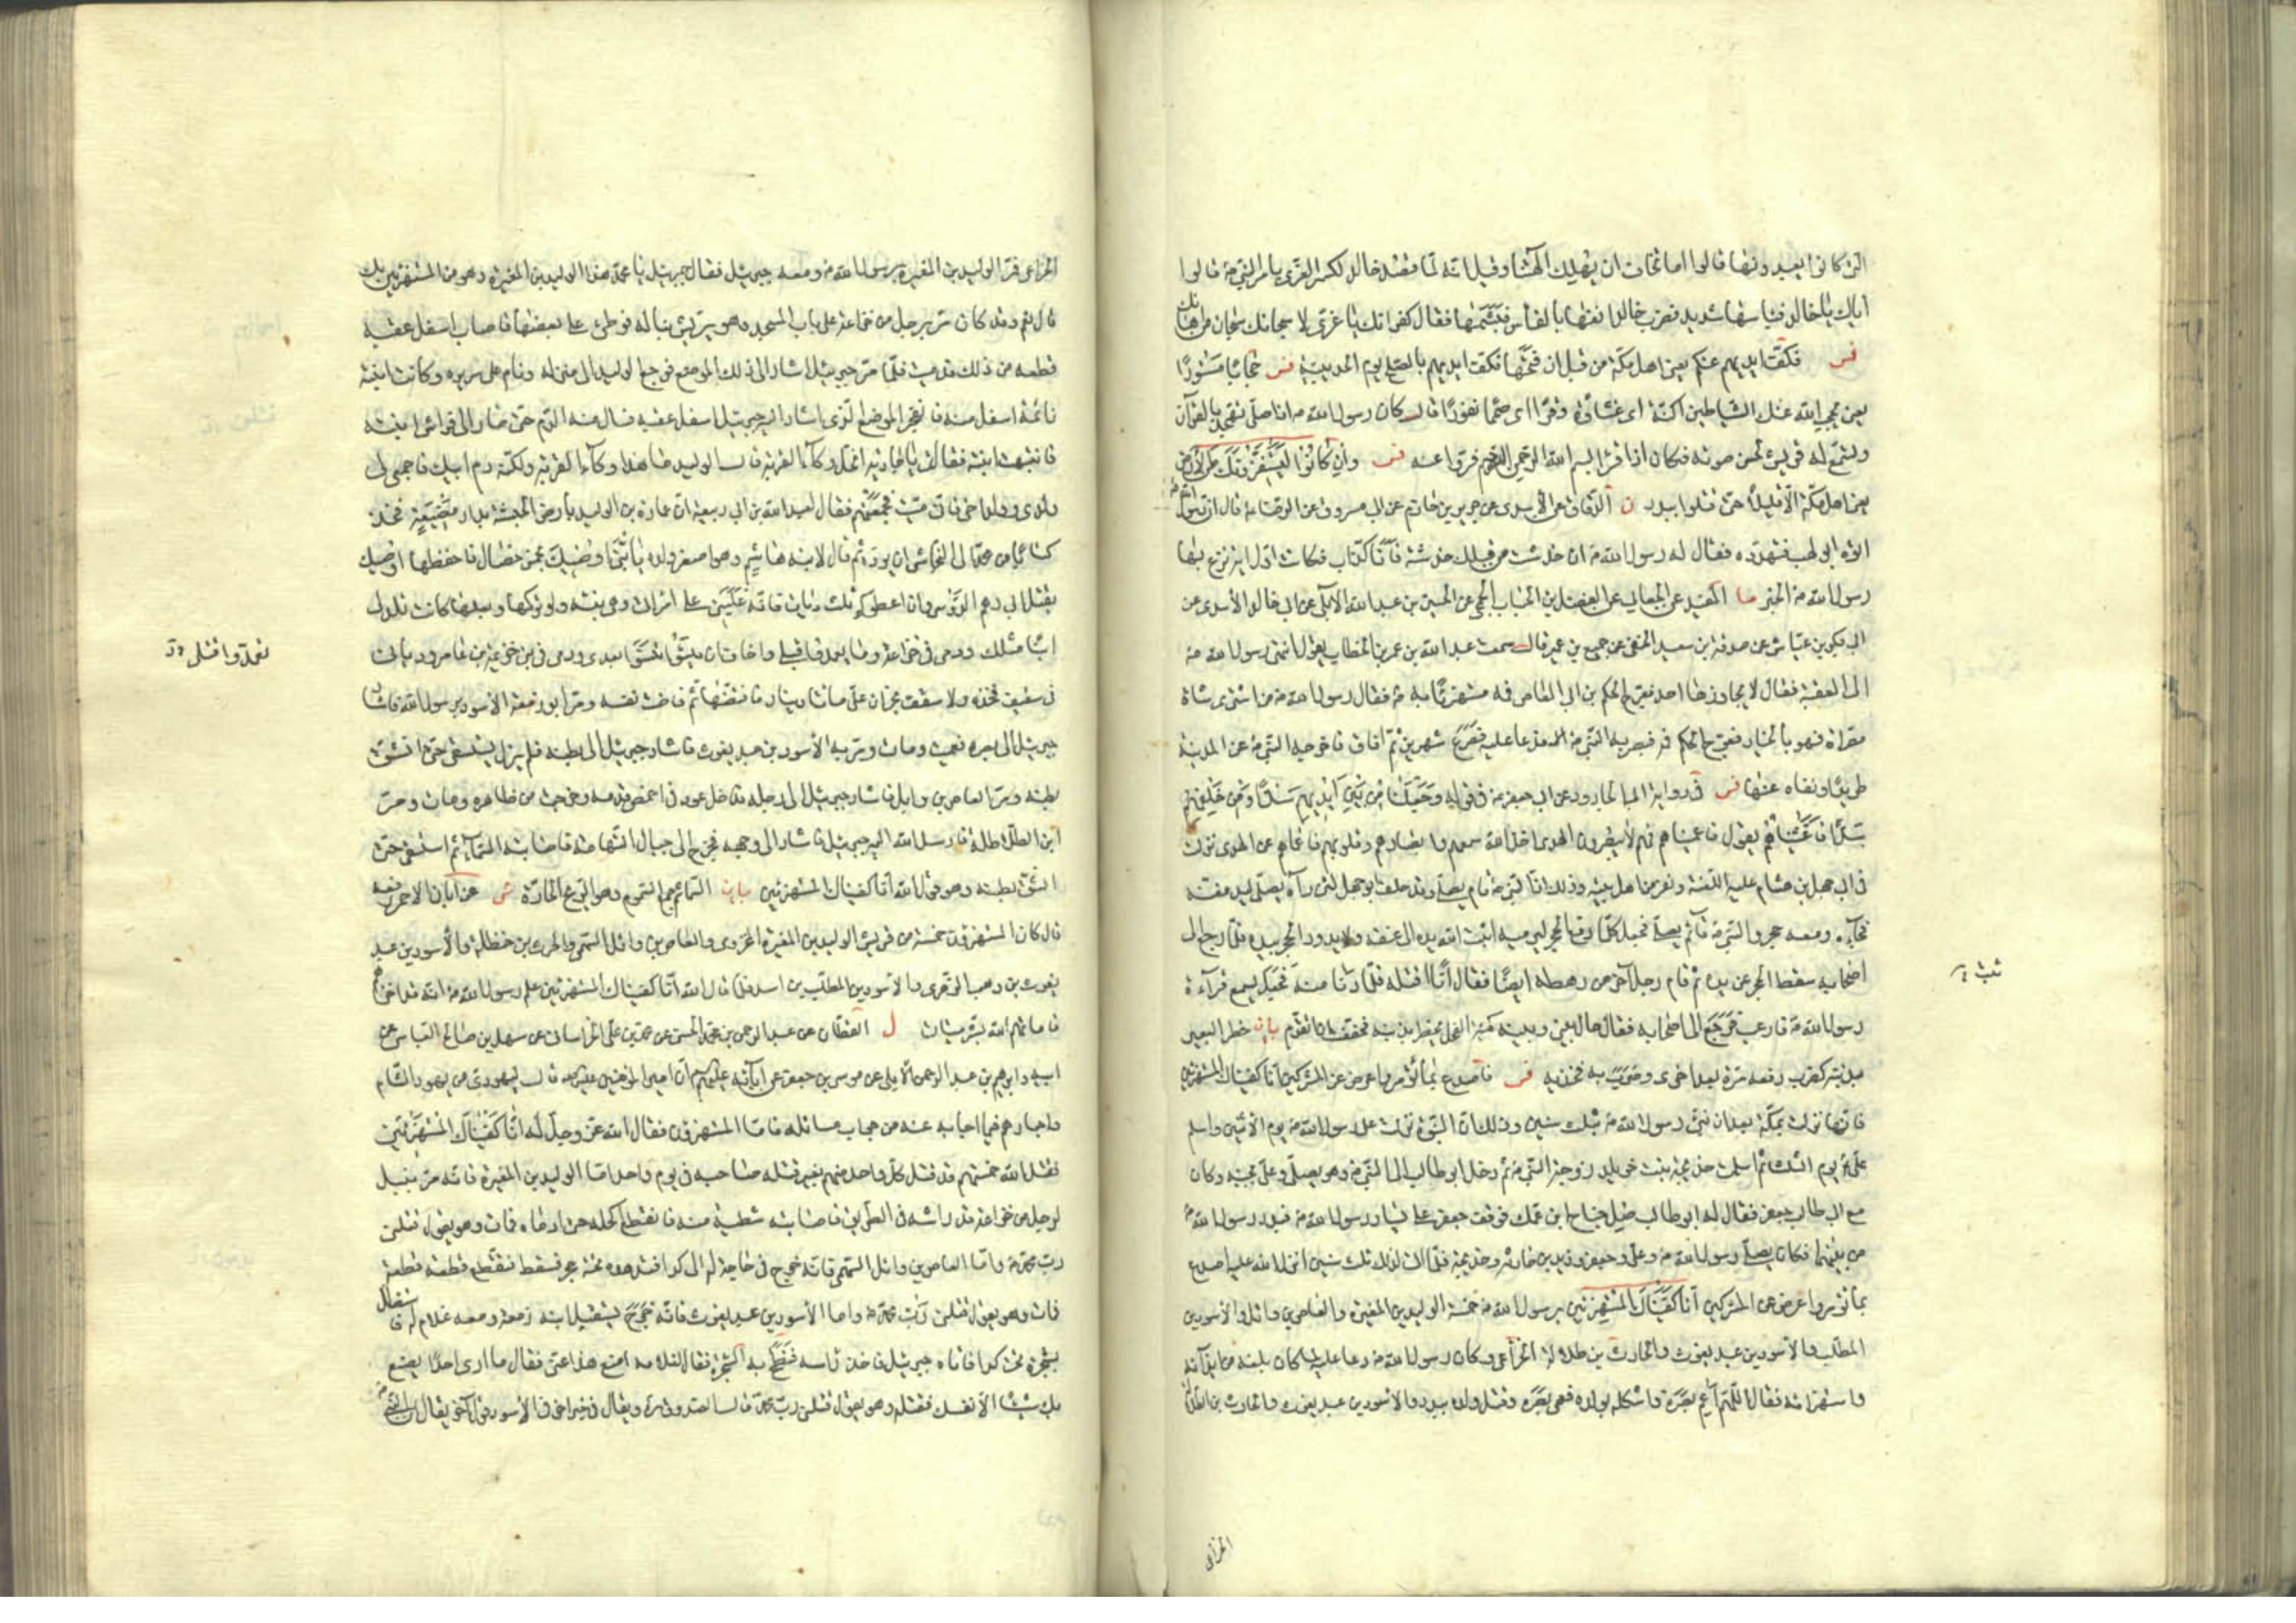 التي كانوا يعبدونها قالوا اما تخاف ان يهلك آلهتنا وقيل انه لما قصد خالد لكسر العزى بامر النبي ص قالوا
اياك يا خالد فبأسها شديد فضرب خالد انفها بالفأس فهشمها فقال كفرانك يا عزى لا سبحانك سبحان من اهانك
فس فكف ايديهم عنكم يعني اهل مكة من قبل ان فتحها فكف ايديهم بالصلح يوم الحديبية فس حجابا مستورا
يعني يحجب الله عنك الشياطين اكنة اي غشاوة وقرا اي صمما نفورا قال كان رسول الله ص اذا صلى تهجد بالقرآن
وتسمع له قريش لحسن صوته فكان اذا قرأ بسم الله الرحمن الرحيم فروا عنه فس وان كانوا ليستفزونك من الارض
يعني اهل مكة الا قليلا حتى قتلوا ببدر ن الدقاق عن الاسدي عن جرير بن حازم عن ابي مسروق عن الرضا ع قال ان رسول الله ص
اتاه ابو لهب فتهدده فقال له رسول الله ص ان خدشت من قبلك خدشة فانا كذاب فكانت اول آية نزع بها
رسول الله ص الخبر ما المفيد عن الجعابي عن الفضل بن الحباب الجمحي عن الحسين بن عبد الله الابلي عن ابي خالد الاسدي عن
ابي بكر بن عياش عن صدقة بن سعيد الحنفي عن جميع بن عمير قال سمعت عبد الله بن عمر بن الخطاب يقول انتهى رسول الله ص
الى العقبة فقال لا يجاوزها احد فعوج الحكم بن ابي العاص فمه مستهزئا به ص فقال رسول الله ص من اشترى شاة
مصراة فهو بالخيار فعوج الحكم فمه فبصر به النبي ص فدعا عليه فصرع شهرين ثم افاق فاخرجه النبي ص عن المدينة
طريدا ونفاه عنها فس في رواية ابي الجارود عن ابي جعفر ع في قوله وجعلنا من بين ايديهم سدا ومن خلفهم
سدا فاغشيناهم يقول فاعميناهم فهم لا يبصرون الهدى اخذ الله سمعهم وابصارهم وقلوبهم فاعماهم عن الهدى نزلت
في ابي جهل بن هشام عليه اللعنة ونفر من اهل بيته وذلك ان النبي ص قام يصلي وقد حلف ابو جهل لئن رآه يصلي ليدمغنه
فجاءه ومعه حجر والنبي ص قائم يصلي فجعل كلما رفع الحجر ليرميه اثبت الله يده الى عنقه ولا يدور الحجر بيده فلما رجع الى
اصحابه سقط الحجر عن يده ثم قام رجل آخر من رهطه ايضا فقال انا اقتله فلما دنا منه فجعل يسمع قرآءة
رسول الله ص فارعب فرجع الى اصحابه فقال حال بيني وبينه كهيئة الفحل يخطر بذنبه فخفت ان اتقدم بيان خطر البعير
بذنبه كضرب رفعه مرة بعد اخرى وضرب به فخذيه فس فاصدع بما تؤمر واعرض عن المشركين انا كفيناك المستهزئين
فانها نزلت بمكة بعد ان نبئ رسول الله ص بثلث سنين وذلك ان النبوة نزلت على رسول الله ص يوم الاثنين واسلم
علي ع يوم الثلثا ثم اسلمت خديجة بنت خويلد زوجة النبي ص ثم دخل ابو طالب الى النبي ص وهو يصلي وعلي بجنبه وكان
مع ابي طالب جعفر فقال له ابو طالب صل جناح ابن عمك فوقف جعفر على يسار رسول الله ص فبدر رسول الله ص
من بينهما فكان يصلي رسول الله ص وعلي وجعفر وزيد بن حارثة وخديجة فلما اتى لذلك ثلث سنين انزل الله عليه اصدع
بما تؤمر واعرض عن المشركين انا كفيناك المستهزئين برسول الله ص خمسة الوليد بن المغيرة والعاص بن وائل والاسود بن
المطلب والاسود بن عبد يغوث والحارث بن طلاطلة الخزاعي وكان رسول الله ص دعا عليه لما كان بلغه من ايذائه
واستهزائه فقال اللهم اعم بصره واثكله بولده فعمي بصره وقتل ولده ببدر والاسود بن عبد يغوث والحارث بن الطلاطلة
ثبت
الخزاعي
الخزاعي فمر الوليد بن المغيرة برسول الله ص ومعه جبرئيل فقال جبرئيل يا محمد هذا الوليد بن المغيرة وهو من المستهزئين بك
قال نعم وقد كان مر برجل من خزاعة على باب المسجد وهو يريش نبالا له فوطئ على بعضها فاصاب اسفل عقبه
قطعة من ذلك فدميت فلما مر جبرئيل اشار الى ذلك الموضع فرجع الوليد الى منزله ونام على سريره وكانت ابنته
نائمة اسفل منه فانفجر الموضع الذي اشار اليه جبرئيل اسفل عقبه فسال منه الدم حتى صار الى فراش ابنته
فانتبهت ابنته فقالت يا جارية انحل وكاء القربة قال الوليد ما هذا وكاء القربة ولكنه دم ابيك فاجمعي لي
ولدي وولد اخي فاني ميت فجمعتهم فقال لعبد الله بن ابي ربيعة ان عمارة بن الوليد بارض الحبشة بدار مضيعة فخذ
كتابا من محمد الى النجاشي ان يرده ثم قال لابنه هاشم وهو اصغر ولده يا بني اوصيك بخمس خصال فاحفظها اوصيك
بقتل ابي رهم الدوسي وان اعطوكم ثلث ديات فانه غلبني على امرأتي وهي بنته ولو تركها وبعلها كانت تلد لي
ابنا مثلك ودمي في خزاعة وما تعمدوا قتلي واخاف ان تنسوا بعدي ودمي في بني خزيمة بن عامر ودياتي
في سقيف فخذه ولاسقف نجران علي مائتا دينار فاقضها ثم فاضت نفسه ومر ابو زمعة الاسود برسول الله فاشار
جبرئيل الى بصره فعمي ومات ومر به الاسود بن عبد يغوث فاشار جبرئيل الى بطنه فلم يزل يستسقي حتى انشق
بطنه ومر العاص بن وايل فاشار جبرئيل الى رجله فدخل عود في اخمص قدمه وخرجت من ظاهره ومات ومر
ابن الطلاطلة فارسل الله اليه جبرئيل فاشار الى وجهه فخرج الى جبال تهامة فاصابته السمائم ثم استسقى حتى
انشق بطنه وهو قول الله انا كفيناك المستهزئين بيان السمائم جمع السموم وهو الريح الحارة شي عن ابان الاحمر رفعه
قال كان المستهزؤن خمسة من قريش الوليد بن المغيرة المخزومي والعاص بن وائل السهمي والحرث بن حنظلة والاسود بن عبد
يغوث بن وهب الزهري والاسود بن المطلب بن اسد فلما قال الله انا كفيناك المستهزئين علم رسول الله ص انه قد اخزاهم
فاماتهم الله بشر ميتات ل القطان عن عبد الرحمن بن محمد الحسني عن محمد بن علي الخراساني عن سهل بن صالح العباسي عن
ابيه وابرهيم بن عبد الرحمن الابلي عن موسى بن جعفر عن آبائه عليهم السلم ان امير المؤمنين ع قال ليهودي من يهود الشام
واحبارهم فيما اجابه عنه من جواب مسائله فاما المستهزؤن فقال الله عز وجل له انا كفيناك المستهزئين
فقتل الله خمستهم قد قتل كل واحد منهم بغير قتلة صاحبه في يوم واحد اما الوليد بن المغيرة فانه مر بنبل
لرجل من خزاعة قد راشه في الطريق فاصابته شظية منه فانقطع اكحله حتى ادماه فمات وهو يقول قتلني
رب محمد ص واما العاص بن وائل السهمي فانه خرج في حاجة له الى كدا فتدهده تحته حجر فسقط فتقطع قطعة قطعة
فمات وهو يقول قتلني رب محمد ص واما الاسود بن عبد يغوث فانه خرج يستقبل ابنه زمعة ومعه غلام له فاستظل
بشجرة تحت كدا فاتاه جبرئيل فاخذ راسه فنطح به الشجرة فقال لغلامه امنع هذا عني فقال ما ارى احدا يصنع
بك شيئا الا نفسك فقتله وهو يقول قتلني رب محمد قال الصدوق ره ويقال في خبر آخر في الاسود قول آخر يقال ان النبي ص
تعمدوا قتلي